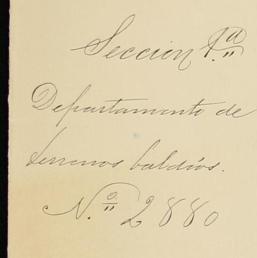 Sección 1.ª
Departamento de
terrenos baldíos.
N.º 2880